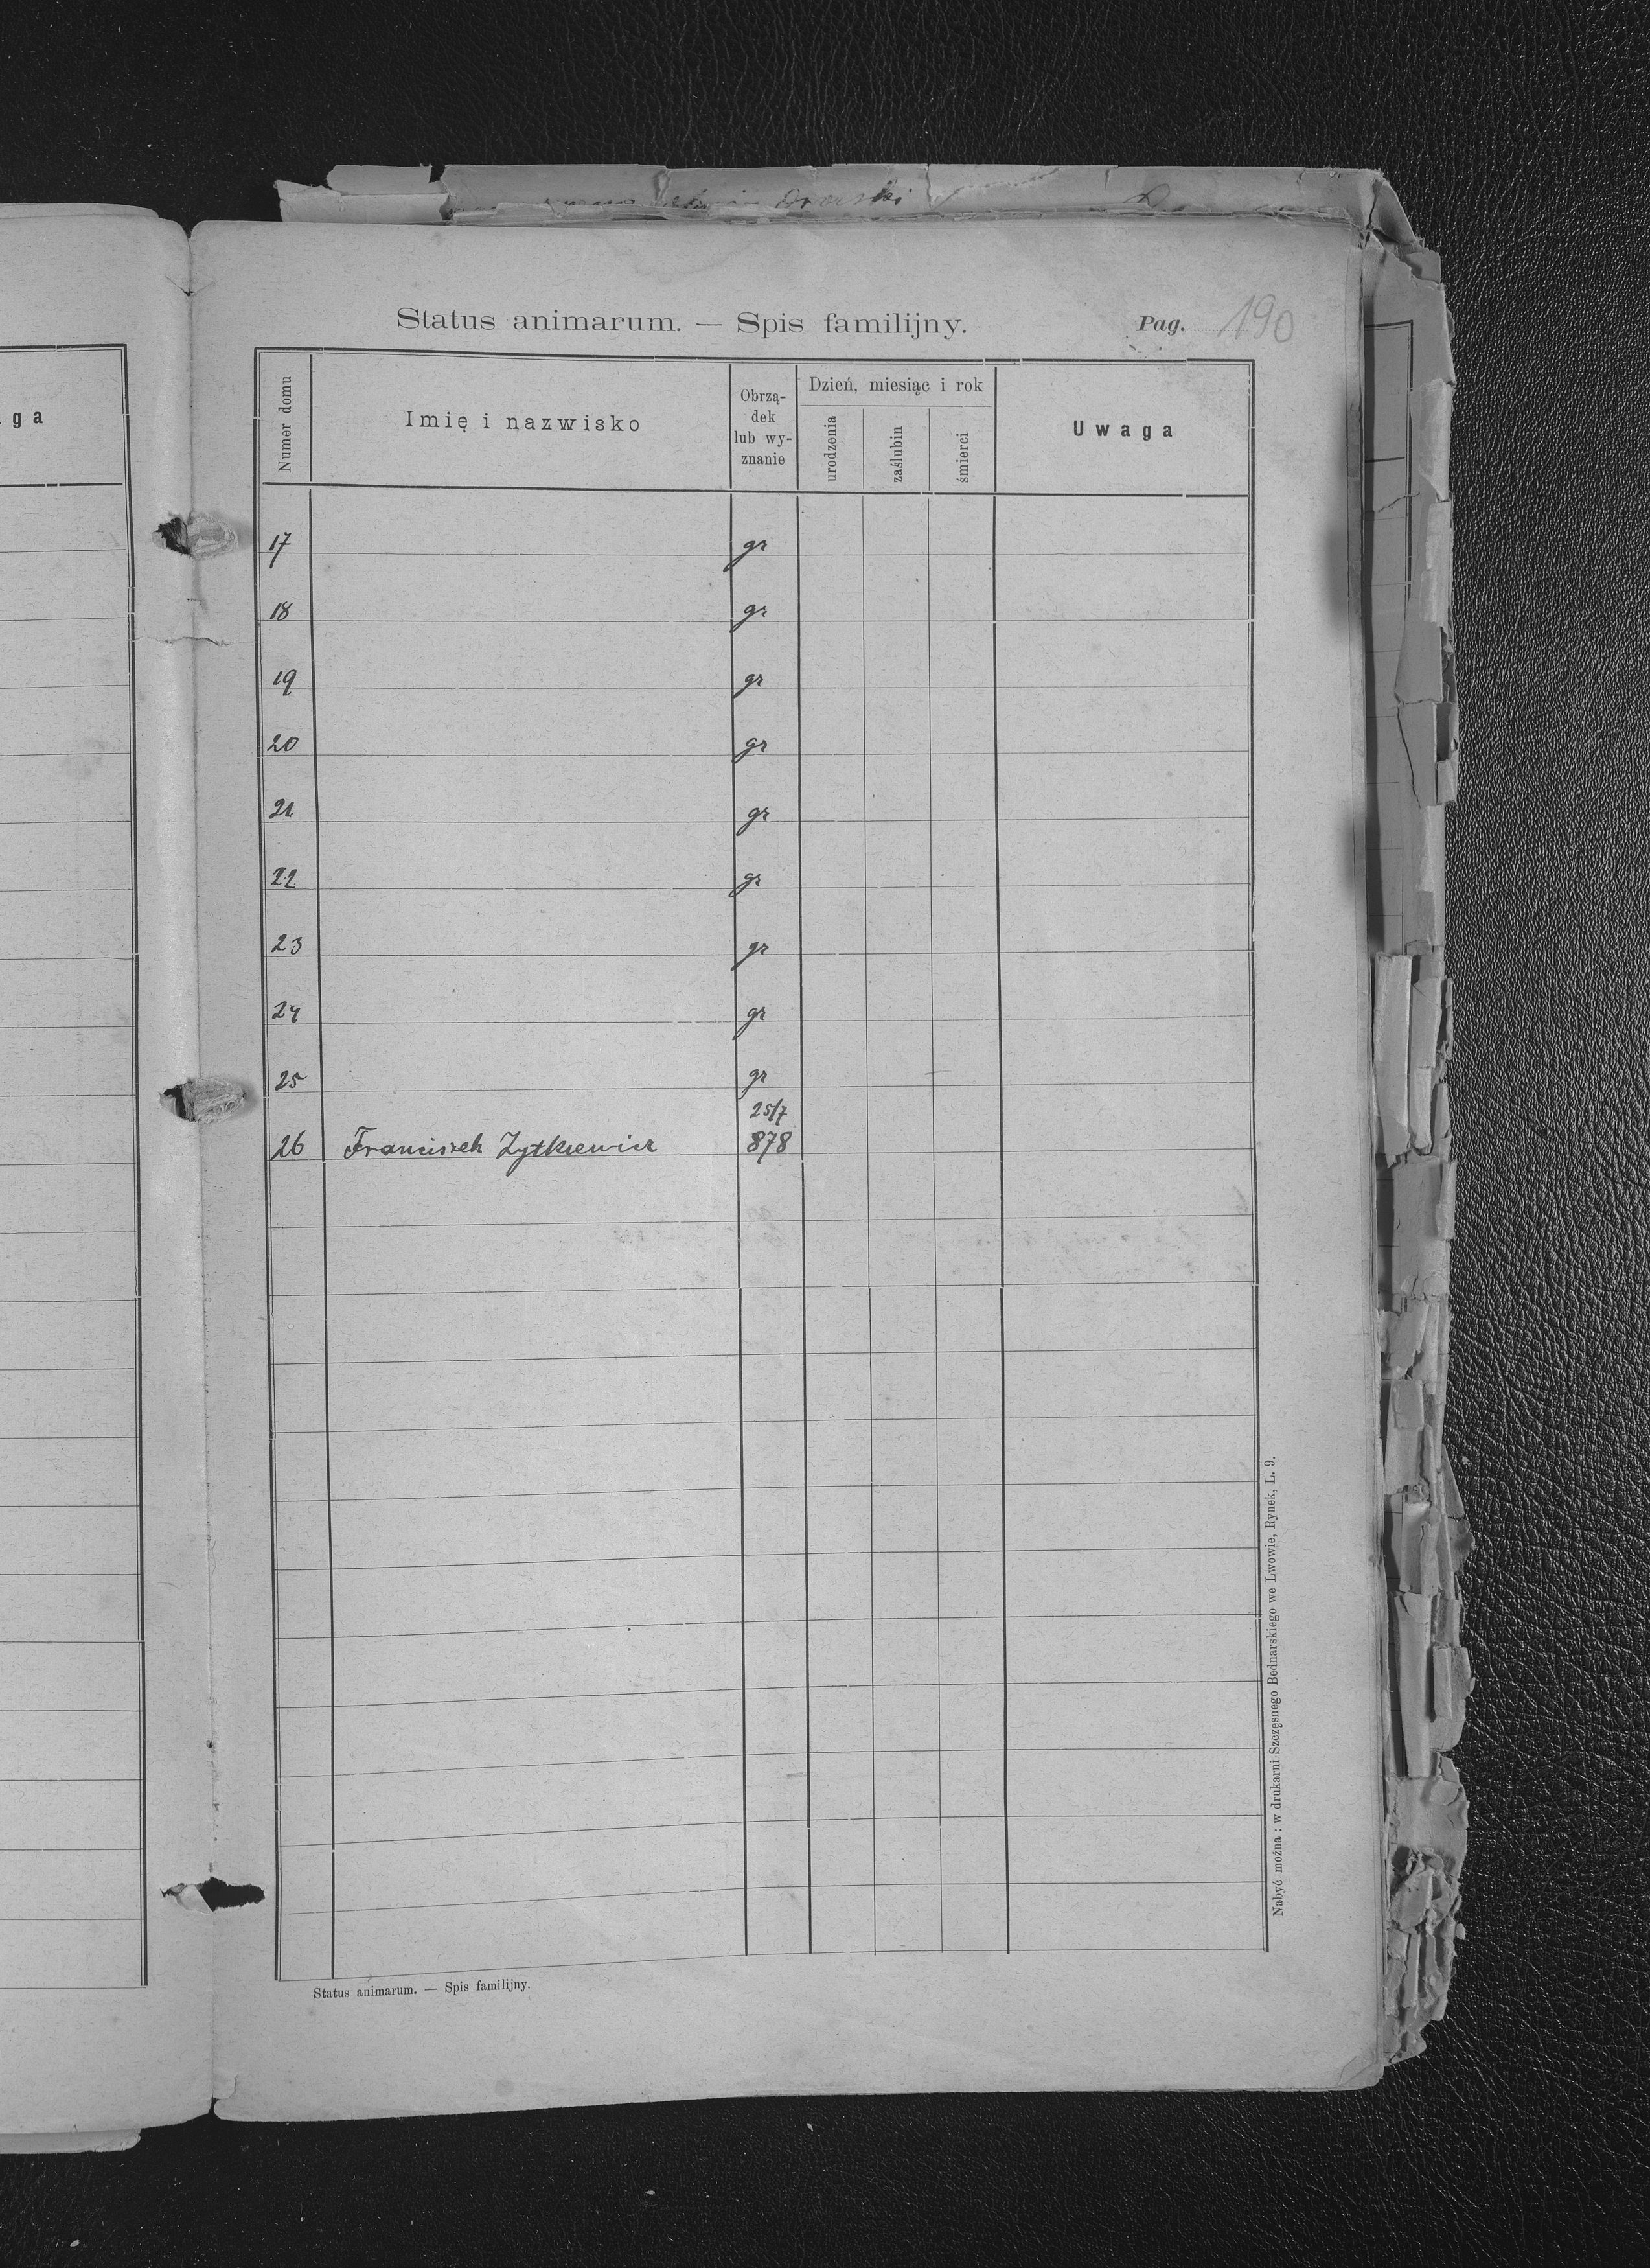 Dworski
Status animarum. — Spis familijny. Pag. 190
ga
Numer domu
Imię i nazwisko
Obrzą-
dek
lub wy-
znanie
Dzień, miesiąc i rok
urodzenia
zaślubin
śmierci
Uwaga
17 gr
18 gr
19 gr
20 gr
21 gr
22 gr
23 gr
24 gr
25 gr
25/7
26 Franciszek Zytkiewicz 878
Nabyć można: w drukarni Szczęsnego Bednarskiego we Lwowie, Rynek, L. 9.
Status animarum. — Spis familijny.